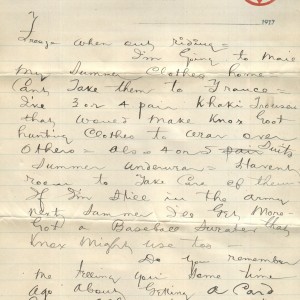 1917
when out riding =
I'm Going to Mail
my Summer Clothes home =
Cant Take them to France =
I've 3 or 4 pair Khaki Trousers
that would Make Knox Good
hunting Clothes to Wear over
Others = also 4 or 5 pair Suits
Summer underwear = Havent
room to Take Care of them
If I'm Still in the army
next Summer I'll Get More =
Got a Baseball Sweater that
Knox Might use too =
Do you remember
me telling you some time
ago about Getting a Card